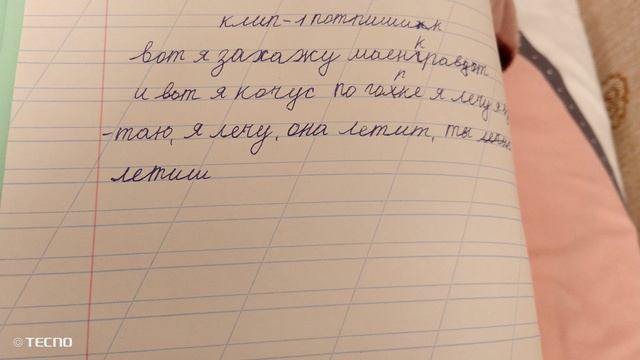 клип-1 потпишик
вот я захажу маен
и вот я кочус по гопке я лечу я
-таю, я лечу, она летит, ты
летиш
TECNO